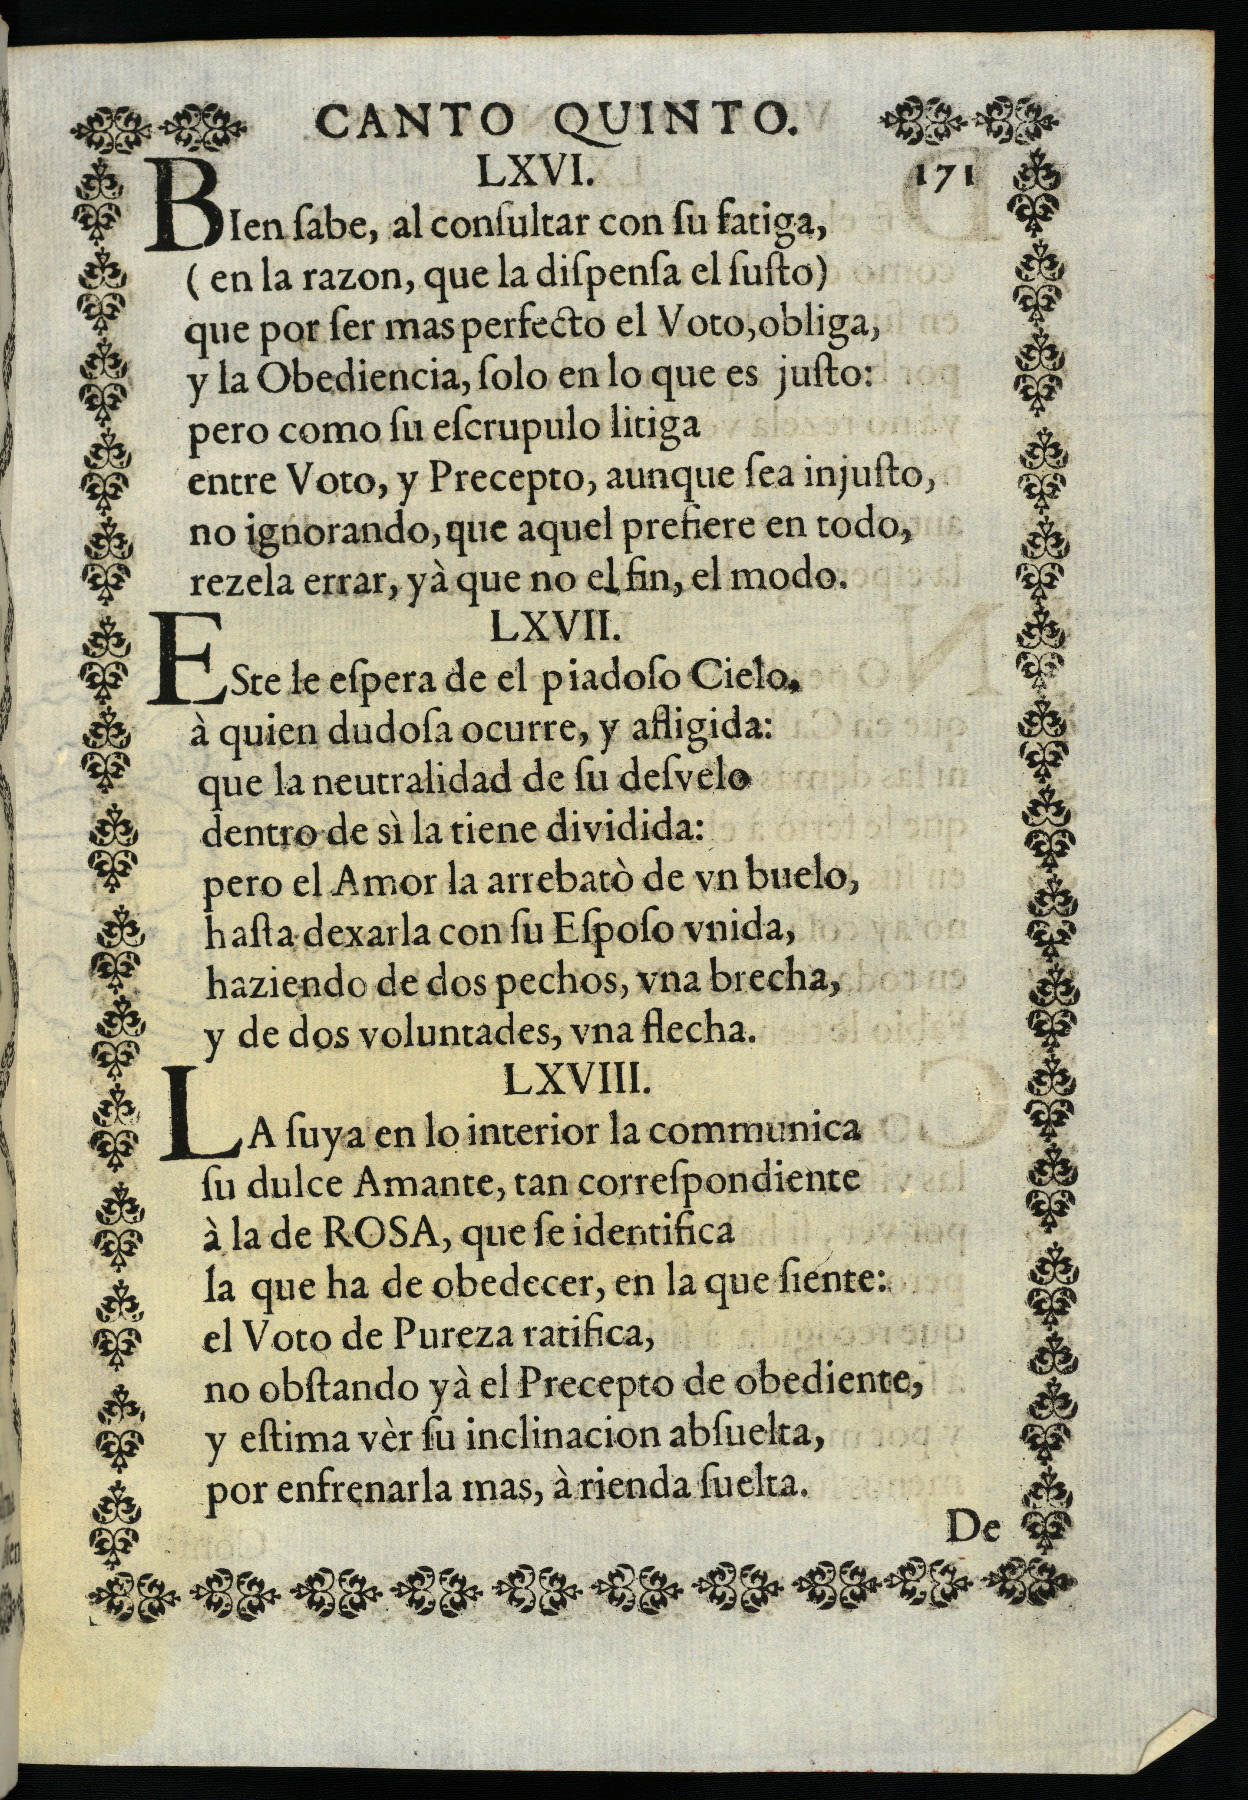 CANTO QUINTO.
LXVI. 171
BIen ſabe, al conſultar con ſu fatiga,
( en la razon, que la diſpenſa el ſuſto)
que por ſer mas perfecto el Voto, obliga,
y la Obediencia, ſolo en lo que es juſto:
pero como ſu eſcrupulo litiga
entre Voto, y Precepto, aunque ſea injuſto,
no ignorando, que aquel prefiere en todo,
rezela errar, yà que no el fin, el modo.
LXVII.
ESte le eſpera de el piadoſo Cielo,
à quien dudoſa ocurre, y afligida:
que la neutralidad de ſu deſvelo
dentro de sì la tiene dividida:
pero el Amor la arrebatò de vn buelo,
haſta dexarla con ſu Eſpoſo vnida,
haziendo de dos pechos, vna brecha,
y de dos voluntades, vna flecha.
LXVIII.
LA ſuya en lo interior la communica
ſu dulce Amante, tan correſpondiente
à la de ROSA, que ſe identifica
la que ha de obedecer, en la que ſiente:
el Voto de Pureza ratifica,
no obſtando yà el Precepto de obediente,
y eſtima vèr ſu inclinacion abſuelta,
por enfrenarla mas, à rienda ſuelta.
De